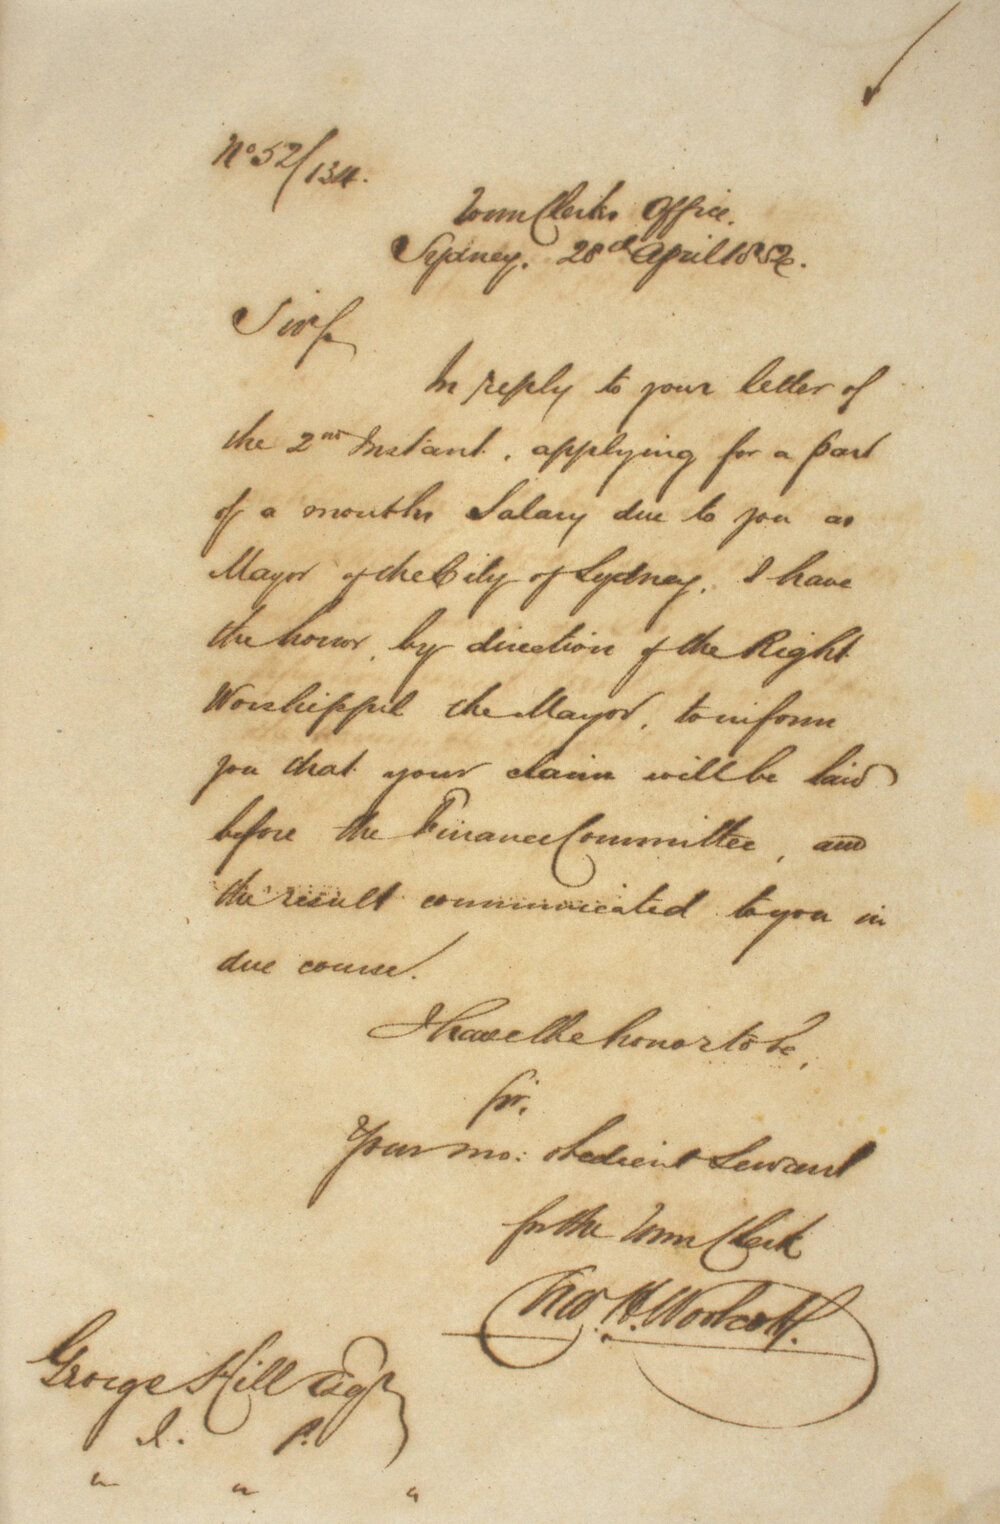 No 52/134.
Town Clerks Office.
Sydney. 28th April 1852.
Sir,
In reply to your letter of
the 2nd Instant, applying for a part
of a months Salary due to you as
Mayor of the City of Sydney, I have
the honor, by direction of the Right
Worshipful the Mayor, to inform
you that your claim will be laid
before the Finance Committee, and
the result communicated to you in
due course.
I have the honor to be,
Sir,
Your mo: obedient Servant
for the Town Clerk
Thos. H. Woolcott.
George Hill Esqr
J. P.
" " "